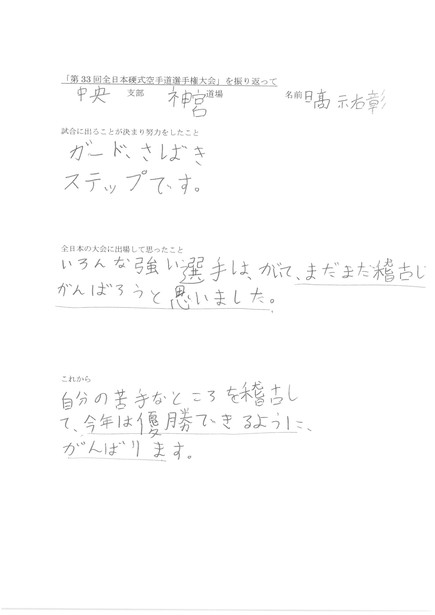 「第33回全日本硬式空手道選手権大会」を振り返って
中央 支部 神宮 道場 名前 祐彰
試合に出ることが決まり努力をしたこと
ガード、さばき
ステップです。
全日本の大会に出場して思ったこと
いろんな強い選手は、がて、まだまだ稽古し
がんばろうと思いました。
これから
自分の苦手なところを稽古し
て、今年は優勝できるように、
がんばります。